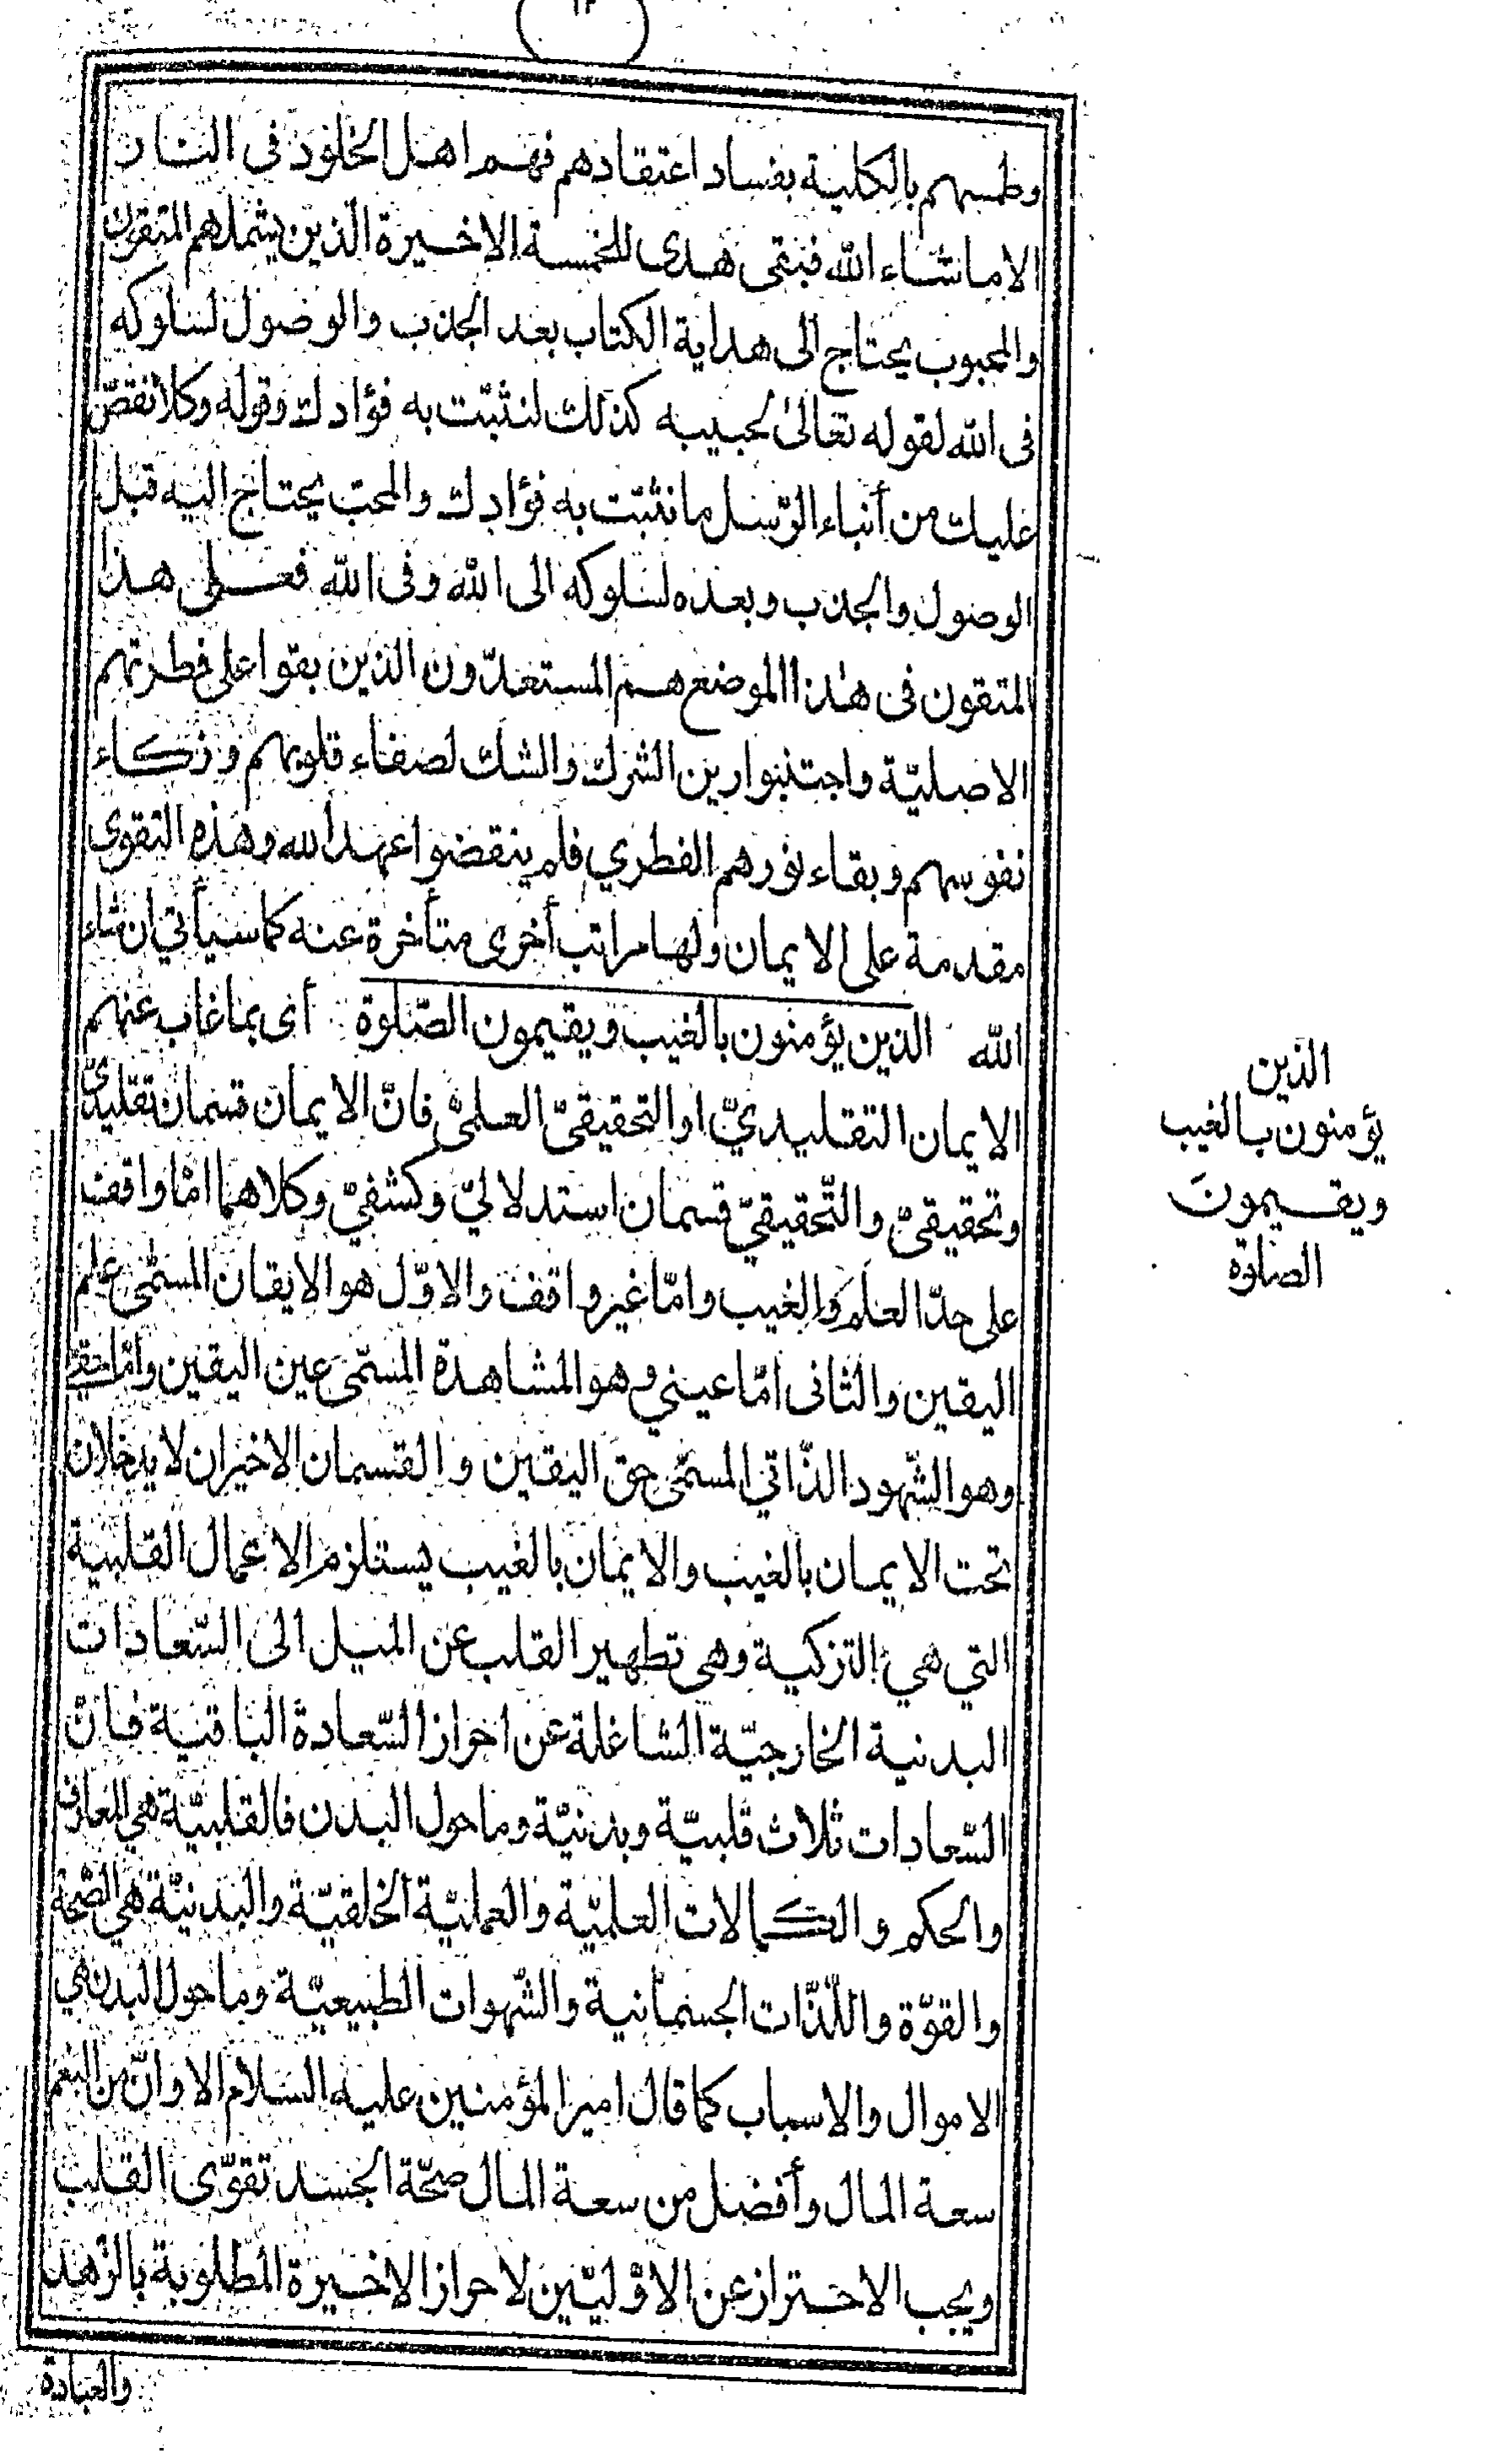 ١٣
وطمسهم بالكلية بفساد اعتقادهم فهم اهل الخلود فى النار
الا ماشاء الله فبقى هدى للخمسة الاخيرة الّذين يشملهم المتقون
والمحبوب يحتاج الى هداية الكتاب بعد الجذب والوصول لسلوكه
فى الله لقوله تعالىٰ لحبيبه كذلك لنثبّت به فؤادك وقوله وكلا نقصّ
عليك من أنباء الرّسل ما نثبّت به فؤادك والمحبّ يحتاج اليه قبل
الوصول والجذب وبعده لسلوكه الى الله وفى الله فعلى هذا
المتقون فى هذا الموضع هم المستعدّون الذين بقوا على فطرتهم
الاصليّة واجتنبوا رين الشرك والشك لصفاء قلوبهم وزكاء
نفوسهم وبقاء نورهم الفطري فلم ينقضوا عهد الله وهذه التقوى
مقدمة على الايمان ولها مراتب أخرى متأخرة عنه كما سيأتي ان شاء
الله الذين يؤمنون بالغيب ويقيمون الصّلوة أى بما غاب عنهم
الايمان التقليديّ او التحقيقىّ العلمىّ فانّ الايمان قسمان تقليدىّ
وتحقيقىّ والتّحقيقيّ قسمان استدلاليّ وكشفيّ وكلاهما امّا واقف
على حدّ العلم والغيب وامّا غير واقف والاوّل هو الايقان المسمّى علم
اليقين والثانى امّا عيني وهو المشاهدة المسمّى عين اليقين وامّا حقّيّ
وهو الشّهود الذّاتي المسمّى حق اليقين والقسمان الاخيران لا يدخلان
تحت الايمان بالغيب والايمان بالغيب يستلزم الاعمال القلبية
التي هي التزكية وهى تطهير القلب عن الميل الى السّعادات
البدنية الخارجيّة الشاغلة عن احراز السّعادة الباقية فانّ
السّعادات ثلاث قلبيّة وبدنيّة وما حول البدن فالقلبيّة هي المعارف
والحكم والكمالات العلميّة والعمليّة الخلقيّة والبدنيّة هي الصّحة
والقوّة واللّذّات الجسمانية والشّهوات الطبيعيّة وما حول البدن هي
الاموال والاسباب كما قال امير المؤمنين عليه السّلام الا وانّ من النعم
سعة المال وأفضل من سعة المال صحّة الجسد تقوّى القلب
ويجب الاحتراز عن الاوّليّين لاحراز الاخيرة المطلوبة بالزّهد
والعبادة
الذين
يؤمنون بالغيب
ويقيمونَ
الصلوة